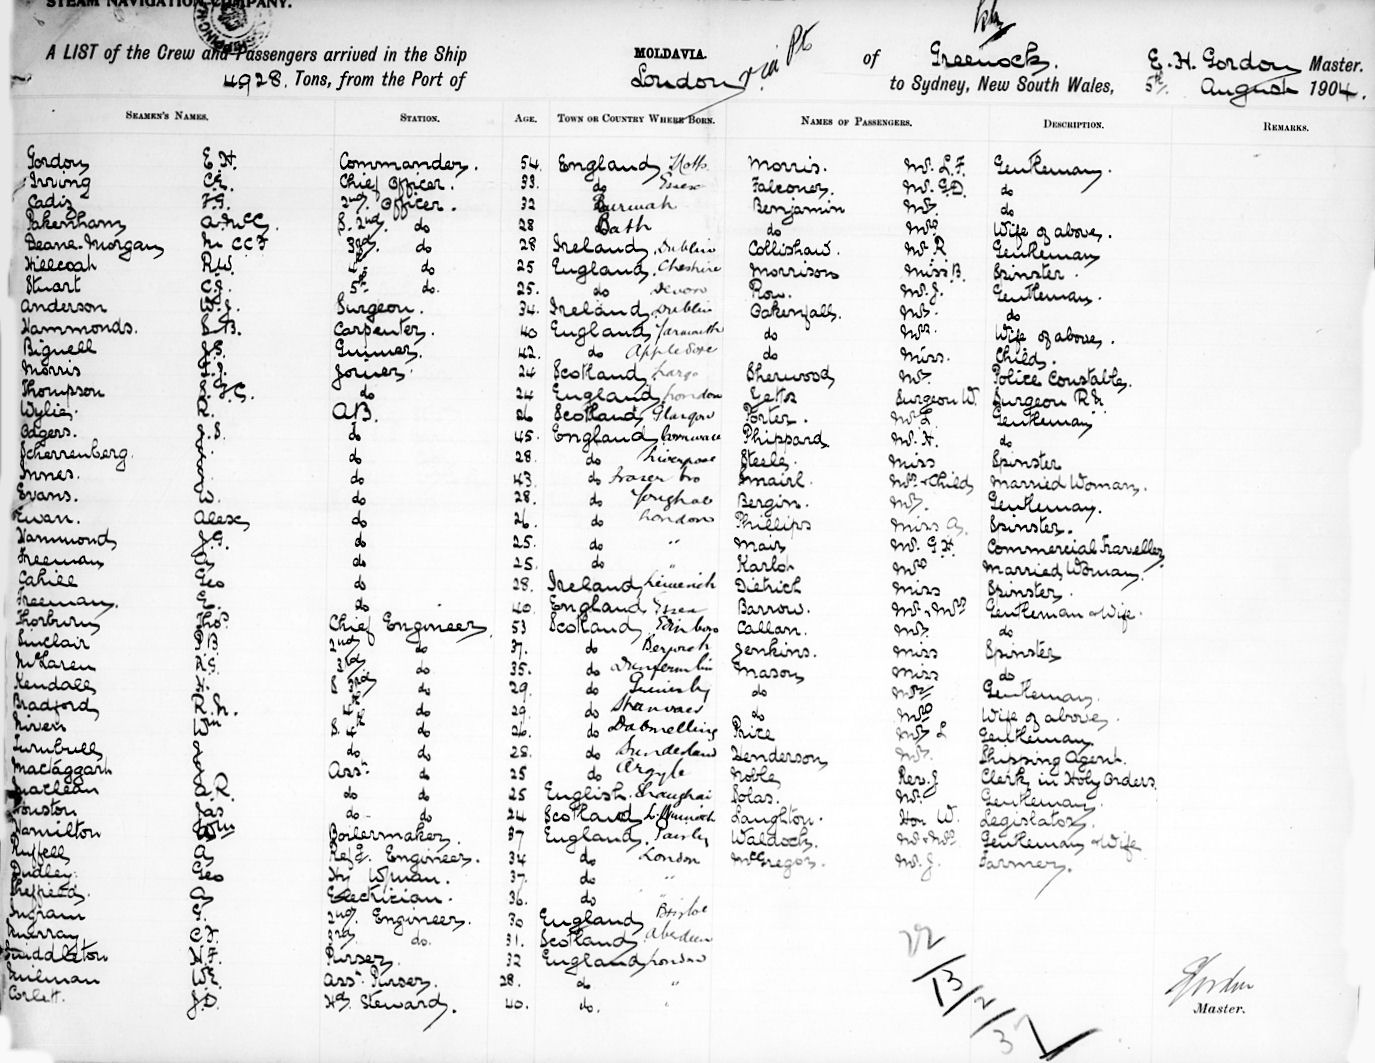 STEAM NAVIGATION COMPANY.
A LIST of the Crew and Passengers arrived in the Ship MOLDAVIA. of Greenock. E. H. Gordon Master.
4928. Tons, from the Port of London via Pts to Sydney, New South Wales, 5th August 1904.
SEAMEN'S NAMES. STATION. AGE. TOWN OR COUNTRY WHERE BORN. NAMES OF PASSENGERS. DESCRIPTION. REMARKS.
Gordon E H. Commander. 54 England Notts Morris. Mr. L.F. Gentleman.
Irving Chief Officer. 33. do Essex Falconer. Mr. G.D. do
Cadiz F.G. 2nd. Officer. 32 Burmah Benjamin Mr. do
Pakenham A. McC. S. 2nd. do 28 Bath do Mrs Wife of above.
Deane-Morgan 3rd. do 28 Ireland Dublin Collishaw. Mr. R Gentleman
Hillcoat R.W. 4th do 25 England. Cheshire Morrison Miss B. Spinster.
Stuart C.G. 5th. do. 25. do Devon Row. Mr. J. Gentleman.
Anderson W.J. Surgeon. 34. Ireland Dublin Pakenfall. Mr. do
Hammonds. S.B. Carpenter. 40 England Yarmouth do Mrs. Wife of above.
Bignell J.S. Gunner. 42. do Appledore do Miss. Child.
Morris Joiner. 24 Scotland Largo Sherwood Mr. Police Constable.
Thompson do 24 England London Yetts Surgeon W. Surgeon R.N.
Wylie. R. A.B. 26 Scotland Glasgow Porter. Mr. L. Gentleman
Odgers. J.S. do 45. England Cornwall Phippard Mr. H. do
Scherrenberg. do 28. do Liverpool Steele. Miss Spinster
Innes. do 43. do Fraserbro Smairl. Mrs. & Child Married Woman.
Evans. W. do 28. do Youghal Bergin. Mr. Gentleman.
Ewan. Alexr do 26. do London Phillips Miss A. Spinster.
Hammond J.G. do 25. do " Mair Mr. G.H. Commercial Traveller
Freeman A do 25. do " Karlot Mrs Married Woman.
Cahill Geo do 28. Ireland Limerick Dietrich Miss Spinster.
Freeman. do 40. England Essex Barrow. Mr. & Mrs Gentleman & Wife.
Thorburn Thos. Chief Engineer 53 Scotland Edinboro Callan. Mr. do
Sinclair P.B. 2nd do 37. do Berwick Jenkins. Miss Spinster
McLaren 3rd. do. 35. do Dunfermlin Mason Miss do
Kendall S. 3rd do 29. do Grimsby do Mr. Gentleman.
Bradford R.N. 4th do 29. do Stanraer do Mrs Wife of above.
Niven Wm S. 4th do 26. do Dalmelling Price Mr. L Gentleman.
Turnbull do do 28. do Sunderland Henderson Mr. Shipping Agent.
MacTaggart Asst. do 25 do Argyle Noble Rev. J Clerk in Holy Orders
Maclean A.R. do do 25 English. Shanghai Solas. Mr. Gentleman.
Houston Jas do do 24 Scotland Laughton. Hon W. Legislator.
Hamilton Wm Boilermaker. 37 England. Paisley Waldock. Mr. & Mrs. Gentleman & Wife
Ruffell A Refg. Engineer. 34 do London McGregor. Mr. J. Farmer.
Dudley. Geo 37. do "
Sheffield. A Electrician. 36. do "
Ingram 2nd. Engineer. 30 England Bristol
Murray C.F. 3rd do. 31. Scotland Aberdeen
Middleton H.F. Purser. 32 England London
Milman Asst. Purser. 28. do "
Corlett. J.D. Hd. Steward. 40. do. "
EGordon
Master.